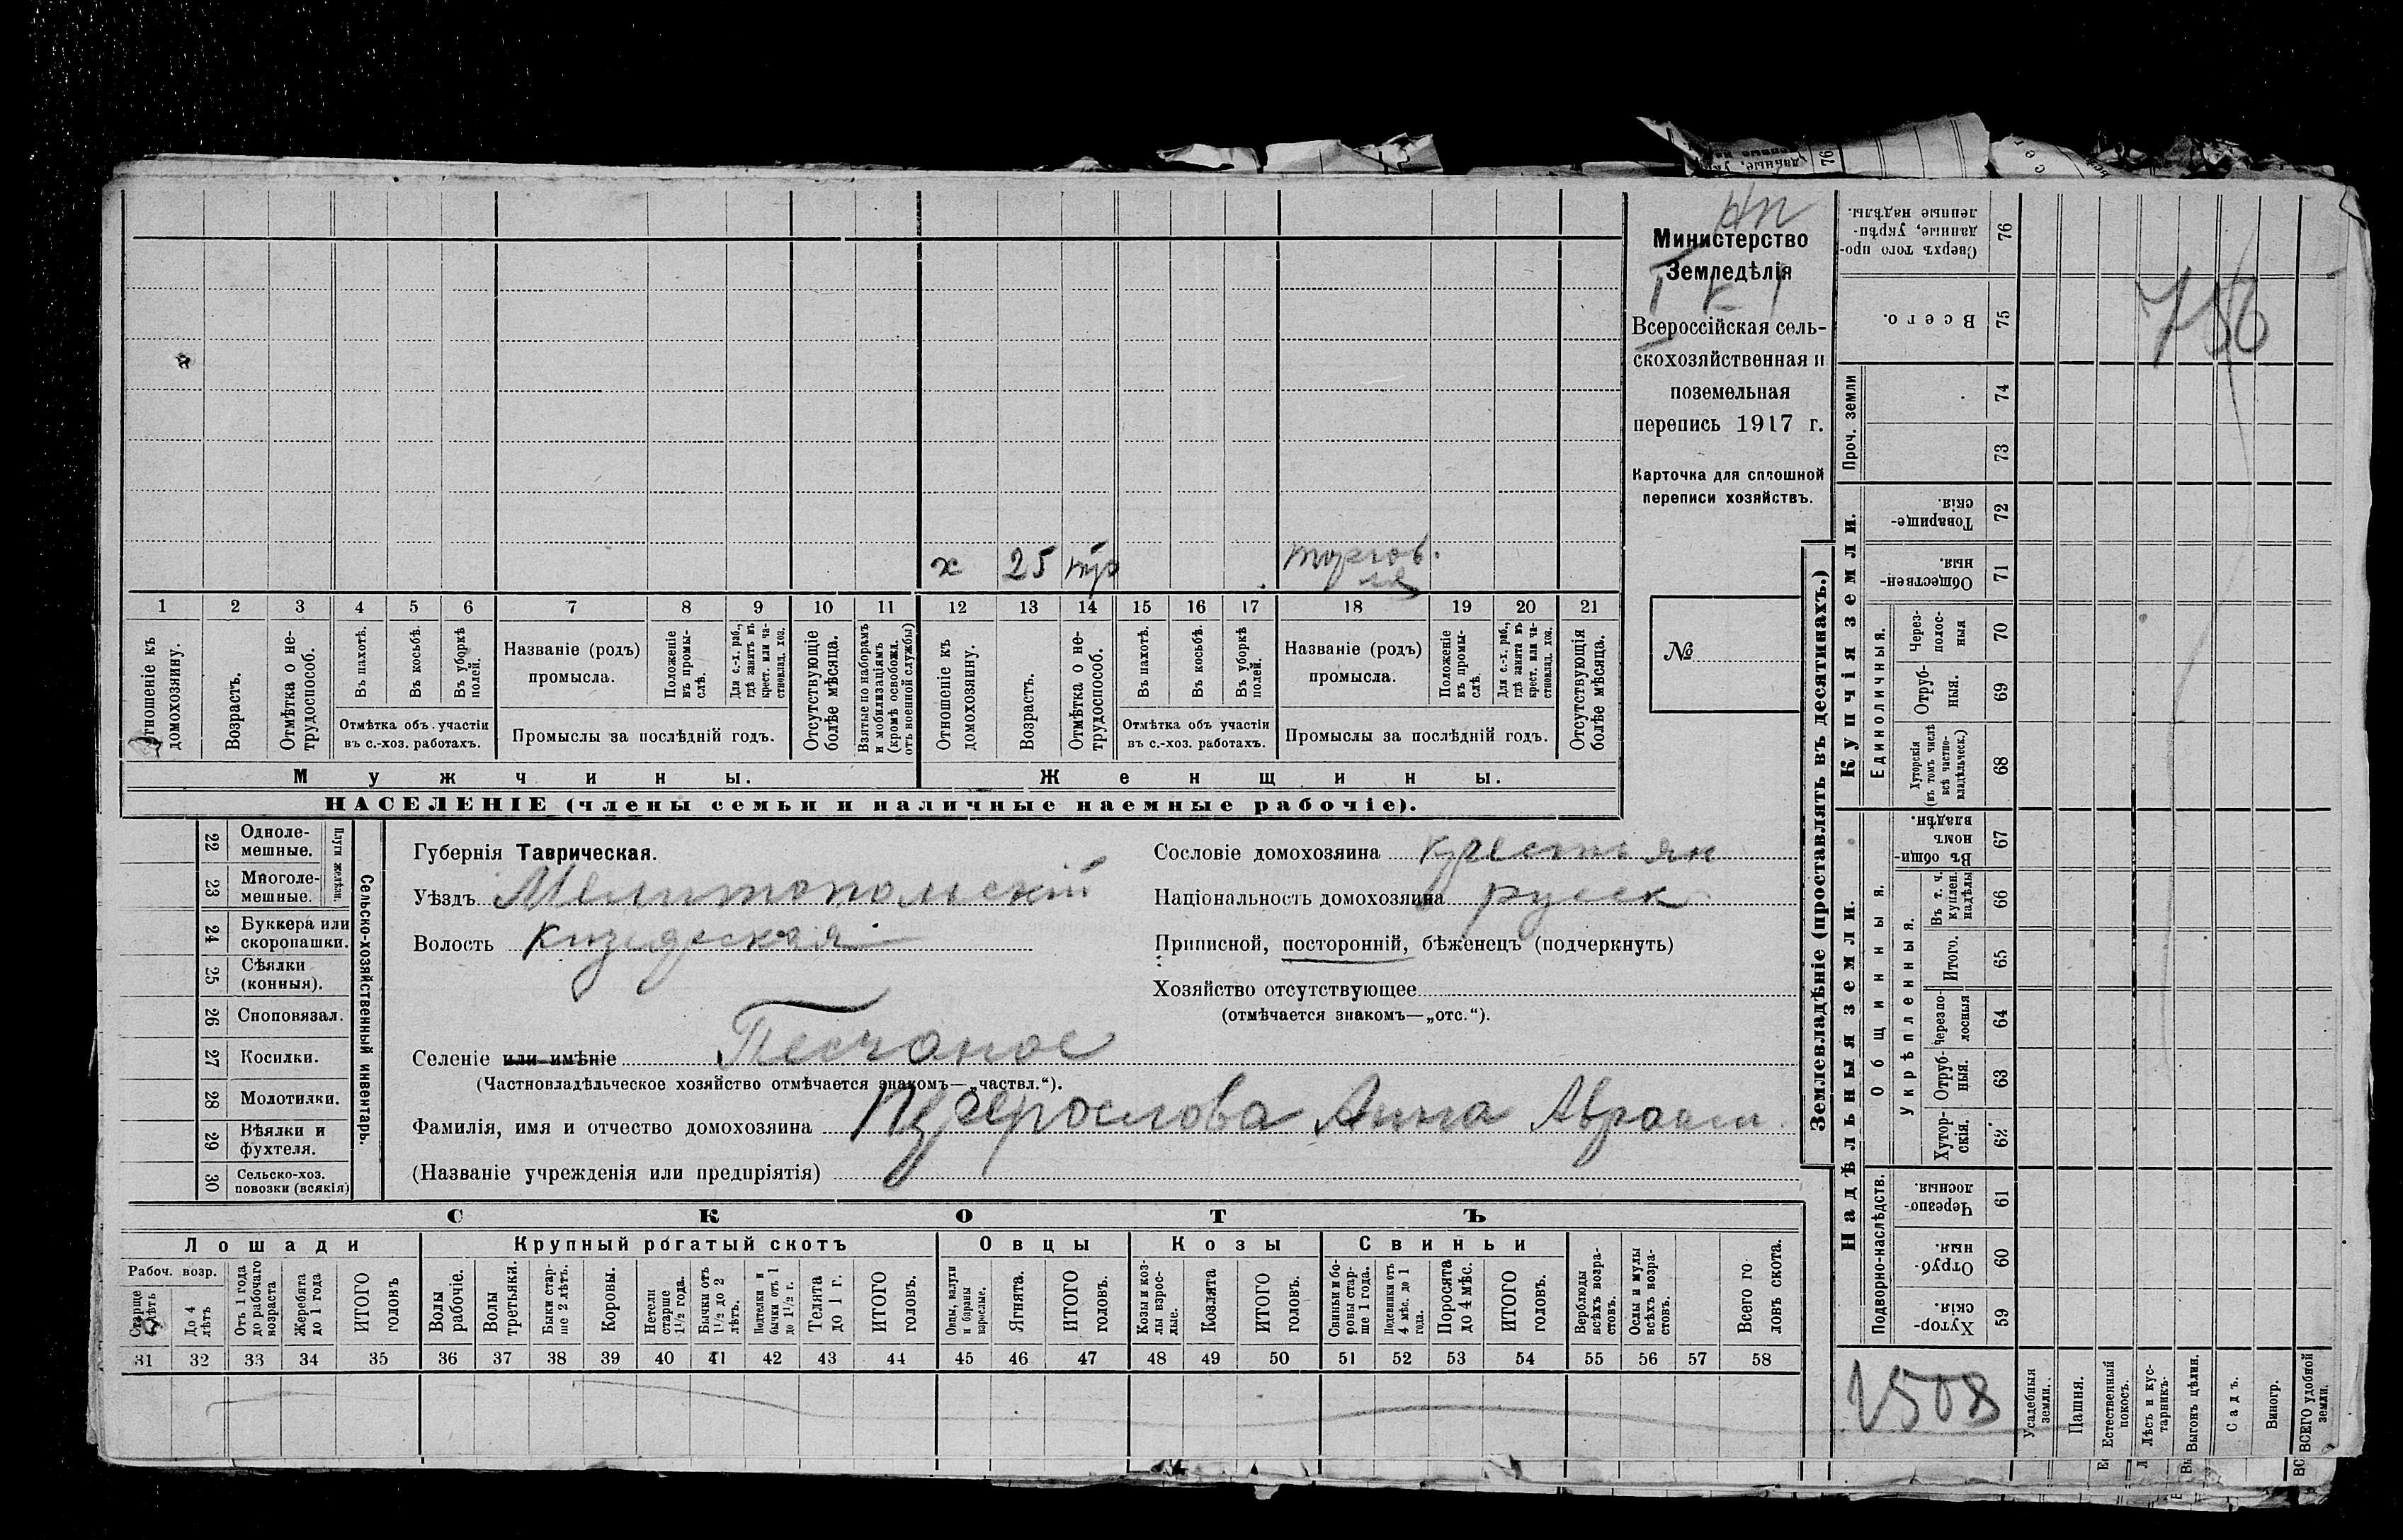 Министерство
Земледѣлія
Всероссійская сель-
скохозяйственная и
поземельная
перепись 1917 г.
Карточка для сплошной
переписи хозяйствъ.
№
х 25 торгов.
ля
1 2 3 4 5 6 7 8 9 10 11 12 13 14 15 16 17 18 19 20 21
Отношеніе къ домохозяину.
Возрастъ.
Отмѣтка о не-трудоспособ.
Въ пахотѣ.
Въ косьбѣ.
Въ уборкѣ полей.
Отмѣтка объ участіи
въ с.-хоз. работахъ.
Названіе (родъ)
промысла.
Положеніе въ промы-слѣ.
Для с.-х. раб., гдѣ занятъ въ крест. или ча-стновлад. хоз.
Промыслы за послѣдній годъ.
Отсутствующіе болѣе мѣсяца.
Взятые по наборамъ и мобилизаціямъ (кромѣ освобожд. отъ военной службы)
Отношеніе къ домохозяину.
Возрастъ.
Отмѣтка о не-трудоспособ.
Въ пахотѣ.
Въ косьбѣ.
Въ уборкѣ полей.
Отмѣтка объ участіи
въ с.-хоз. работахъ.
Названіе (родъ)
промысла.
Положеніе въ промы-слѣ.
Для с.-х. раб., гдѣ занята въ крест. или ча-стновлад. хоз.
Промыслы за послѣдній годъ.
Отсутствующія болѣе мѣсяца.
Мужчины. Женщины.
НАСЕЛЕНІЕ (члены семьи и наличные наемные рабочіе).
22 Одноле-мешные.
23 Многоле-мешные.
Плуги желѣзн.
24 Буккера или скоропашки.
25 Сѣялки (конныя).
26 Сноповязал.
27 Косилки.
28 Молотилки.
29 Вѣялки и фухтеля.
30 Сельско-хоз. повозки (всякія)
Сельско-хозяйственный инвентарь.
Губернія Таврическая.
Уѣздъ Мелитопольскій
Волость
Селеніе или имѣніе Песчаное
(Частновладѣльческое хозяйство отмѣчается знакомъ—„частвл.“).
Фамилія, имя и отчество домохозяина Анна Авраам
(Названіе учрежденія или предпріятія)
Сословіе домохозяина крестьян
Національность домохозяина русск.
Приписной, посторонній, бѣженецъ (подчеркнуть)
Хозяйство отсутствующее
(отмѣчается знакомъ—„отс.“).
СКОТЪ
Лошади Крупный рогатый скотъ Овцы Козы Свиньи
Рабоч. возр.
Старше лѣтъ
До 4 лѣтъ
Отъ 1 года до рабочаго возраста
Жеребята до 1 года
ИТОГО головъ
Волы рабочіе.
Волы третьяки.
Быки стар-ше 2 лѣтъ.
Коровы.
Нетели старше 1½ года.
Бычки отъ 1½ до 2 лѣтъ.
Подтелки и бычки отъ 1 до 1½ г.
Телята до 1 г.
ИТОГО головъ.
Овцы, валухи и бараны взрослые.
Ягнята.
ИТОГО головъ.
Козы и коз-лы взрос-лые.
Козлята
ИТОГО головъ.
Свиньи и бо-ровы стар-ше 1 года.
Подсвинки отъ 4 мѣс. до 1 года.
Поросята до 4 мѣс.
ИТОГО головъ.
Верблюды всѣхъ возра-стовъ.
Ослы и мулы всѣхъ возра-стовъ.
Всего го-ловъ скота.
31 32 33 34 35 36 37 38 39 40 41 42 43 44 45 46 47 48 49 50 51 52 53 54 55 56 57 58
Землевладѣніе (проставлять въ десятинахъ.)
Сверхъ того про-данные, укрѣп-ленные надѣлы. 76
Всего. 75
Проч. земли 74
73
Купчія земли.
Товарище-скія. 72
Обществен-ныя. 71
Единоличныя.
Через-полос-ныя 70
Отруб-ныя. 69
Хуторскія (въ томъ числѣ всѣ частно-владѣльческ.) 68
Надѣльныя земли.
Общинныя.
Въ общин-номъ владѣн. 67
Укрѣпленныя.
Въ т. ч. куплен. надѣлы 66
Итого. 65
Черезпо-лосныя 64
Отруб-ныя. 63
Хутор-скія. 62
Подворно-наслѣдств.
Черезпо-лосныя. 61
Отруб-ныя. 60
Хутор-скія. 59
1508
Усадебныя земли.
Пашня.
Естественный покосъ.
Лѣсъ и кус-тарникъ.
Выгонъ цѣлин.
Садъ.
Виногр.
ВСЕГО удобной земли.